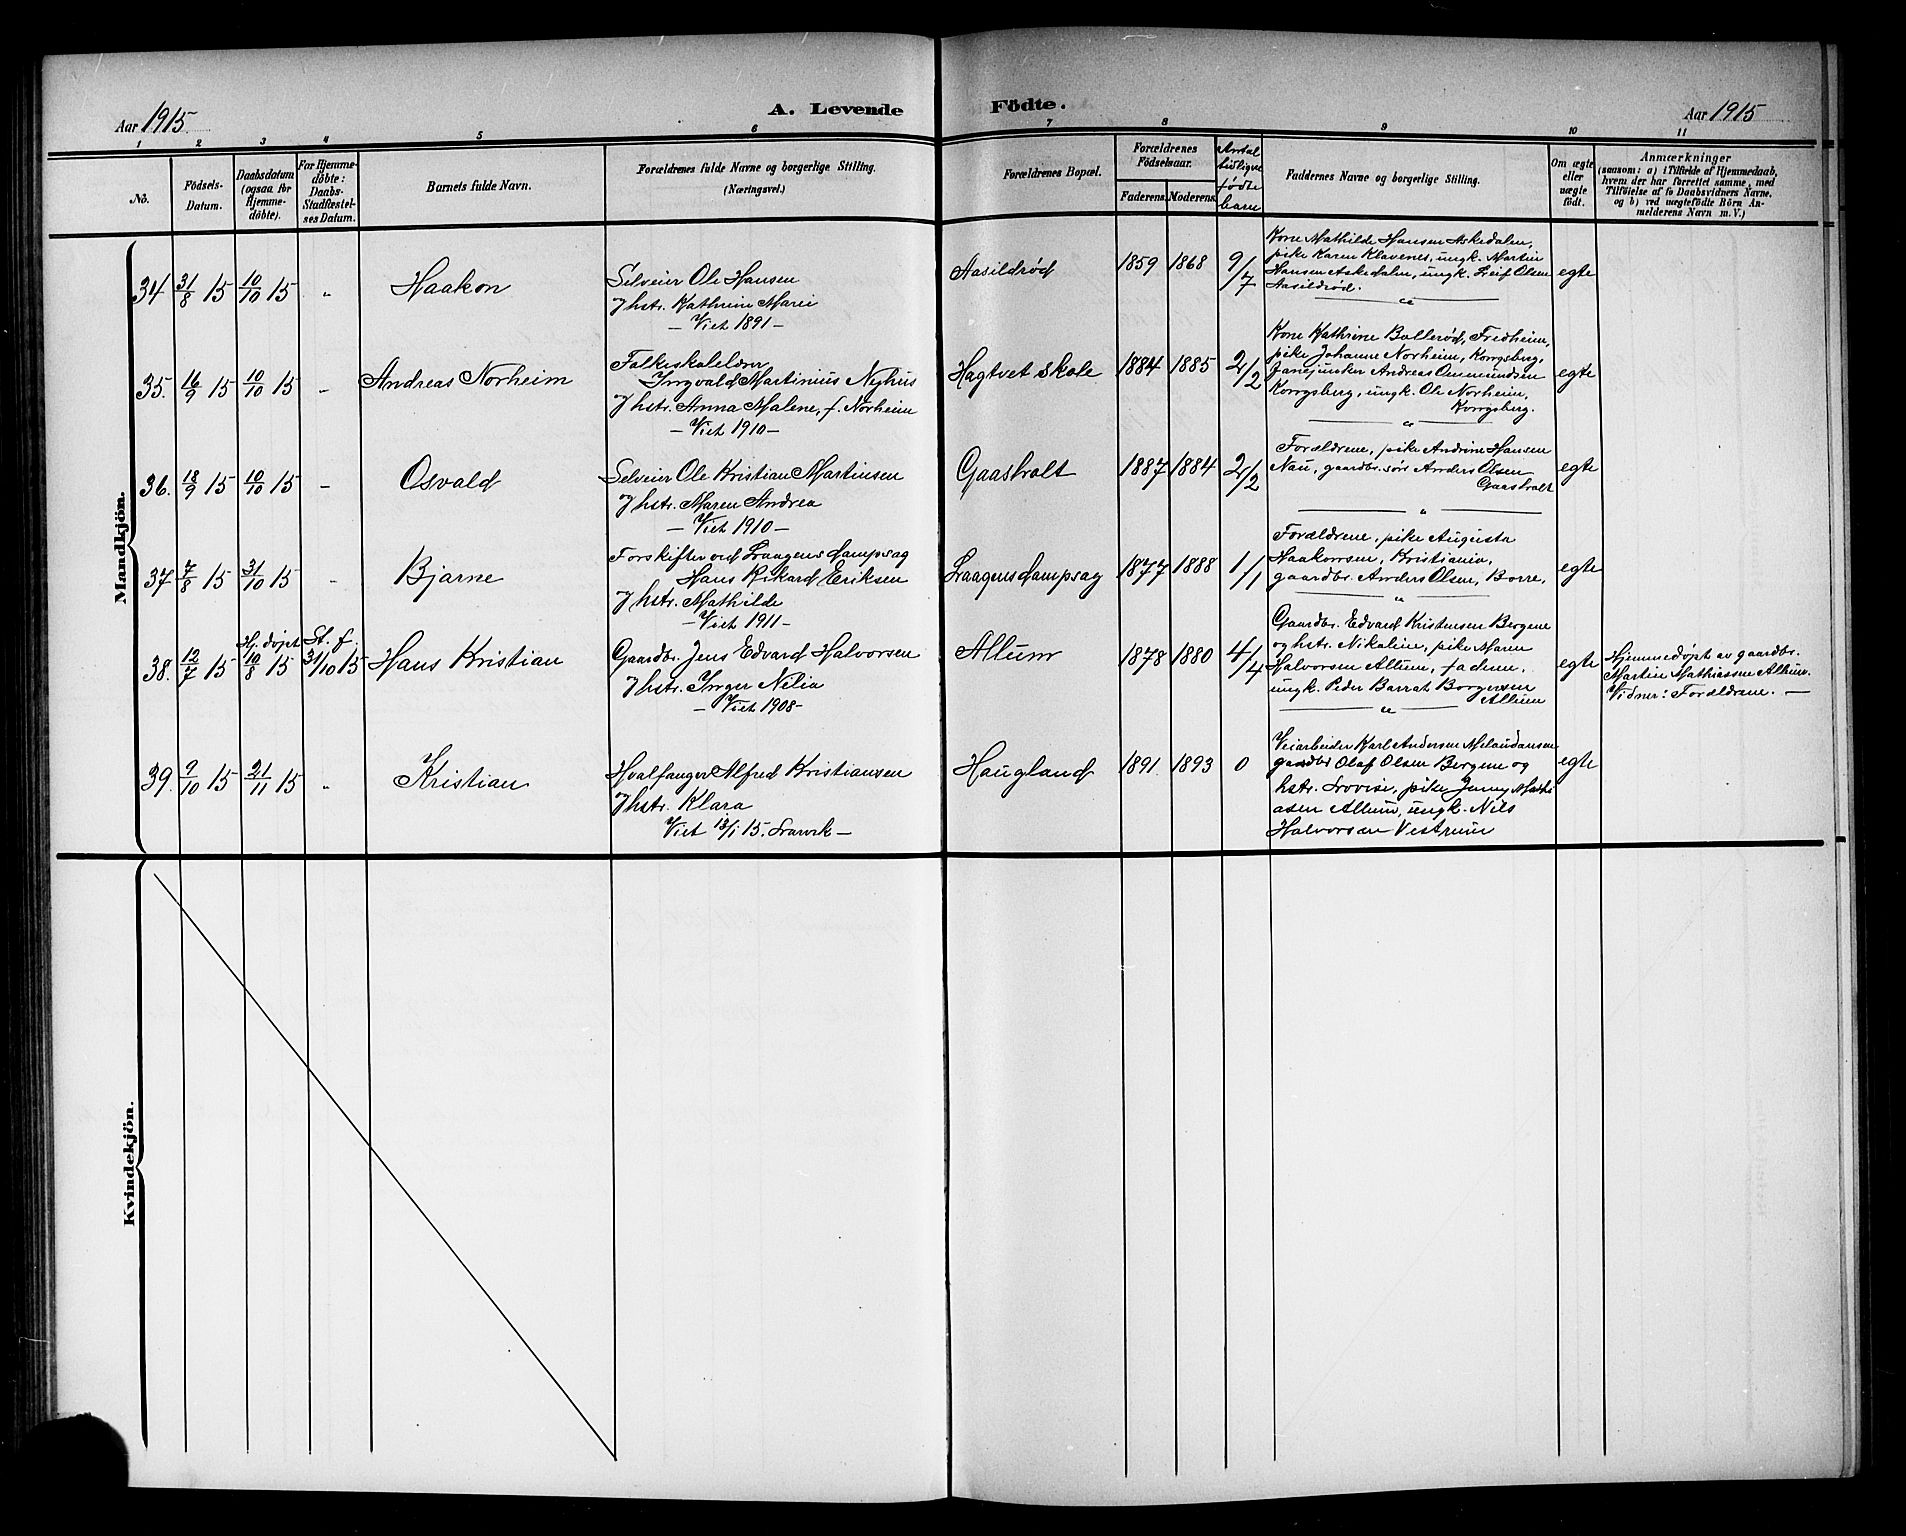 Aar 1915.
A. Levende Födte.
Aar 1915
1 2 3 4 5 6 7 8 9 10 11
No.
Födsels-Datum.
Daabsdatum (ogsaa for Hjemmedöbte).
For Hjemmedöbte: Daabs-Stadfæstelses Datum.
Barnets fulde Navn.
Forældrenes fulde Navne og borgerlige Stilling.
(Næringsvei.)
Forældrenes Bopæl.
Forældrenes Födselsaar.
Faderens. Moderens.
Antal tidligere fødte barn
Faddernes Navne og borgerlige Stilling.
Om ægte eller uægte födt.
Anmærkninger
(saasom: a) i Tilfælde af Hjemmedaab, hvem der har forrettet samme, med Tilföielse af to Daabsvidners Navne, og b) ved uægtefödte Börn Anmelderens Navn m. V.)
Mandkjön.
34 31/8 15 10/10 15 "
Haakon
Selveier Ole Hansen
Jhstr. Kathrine Marie
- Viet 1891 -
Aasildrød
1859 1868 9/7
Kone Mathilde Hansen Askedalen,
pike Karen Klavenes, ungk. Martin
Hansen Askedalen, ungk. Leif Olsen
Aasildrød.
egte
35. 16/9 15 10/10 15 -
Andreas Norheim
Folkeskolelærer
Ingvald Martinius Nyhus
Jhstr. Anna Malene, f. Norheim
- Viet 1910 -
Hagtvet skole
1884 1885 2/2
Kone Kathrine Bollerød, Fredheim,
pike Johanne Norheim, Kongsberg,
Fanejunker Andreas Ommundsen
Kongsberg, ungk. Ole Norheim,
Kongsberg.
egte
36. 18/9 15 10/10 15 -
Osvald
Selveier Ole Kristian Martinsen
Jhstr. Maren Andrea
- Viet 1910 -
Gaasholt
1887 1884 2/2
Forældrene, pike Andrine Hansen
Nau, gaardbr. søn Anders Olsen
Gaasholt
egte
37 7/8 15 31/10 15 -
Bjarne
Forskifter ved Laagens dampsag
Hans Rikard Eriksen
Jhstr. Mathilde
- Viet 1911 -
Laagens dampsag
1877 1888 1/1
Forældrene, pike Augusta
Haakonsen, Kristiania,
gaardbr. Anders Olsen, Borre.
egte
38. 12/7 15 Hj. døpt 10/8 15 St. f. 31/10 15
Hans Kristian
Gaardbr. Jens Edvard Halvorsen
Jhstr. Inger Nelia
- Viet 1908 -
Allum
1878 1880 4/4
Gaardbr. Edvard Kristensen Bergene
og hstr. Nikoline, pike Maren
Halvorsen Allum, faderen,
ungk. Peder Barrat Borgersen
Allum
egte
Hjemmedøpt av gaardbr.
Martin Mathiassen Allum.
Vidner: Forældrene. -
39. 9/10 15 21/11 15 "
Kristian
Hvalfanger Alfred Kristiansen
Jhstr. Klara
Viet 13/1 15. Larvik -
Haugland
1891 1893 0
Veiarbeider Karl Andersen
gaardbr Olaf Olsen Bergene og
hstr. Lovise, pike Jenny Mathi
asen Allum, ungk. Nils
Halvorsen Vestrum
egte
Kvindekjön.